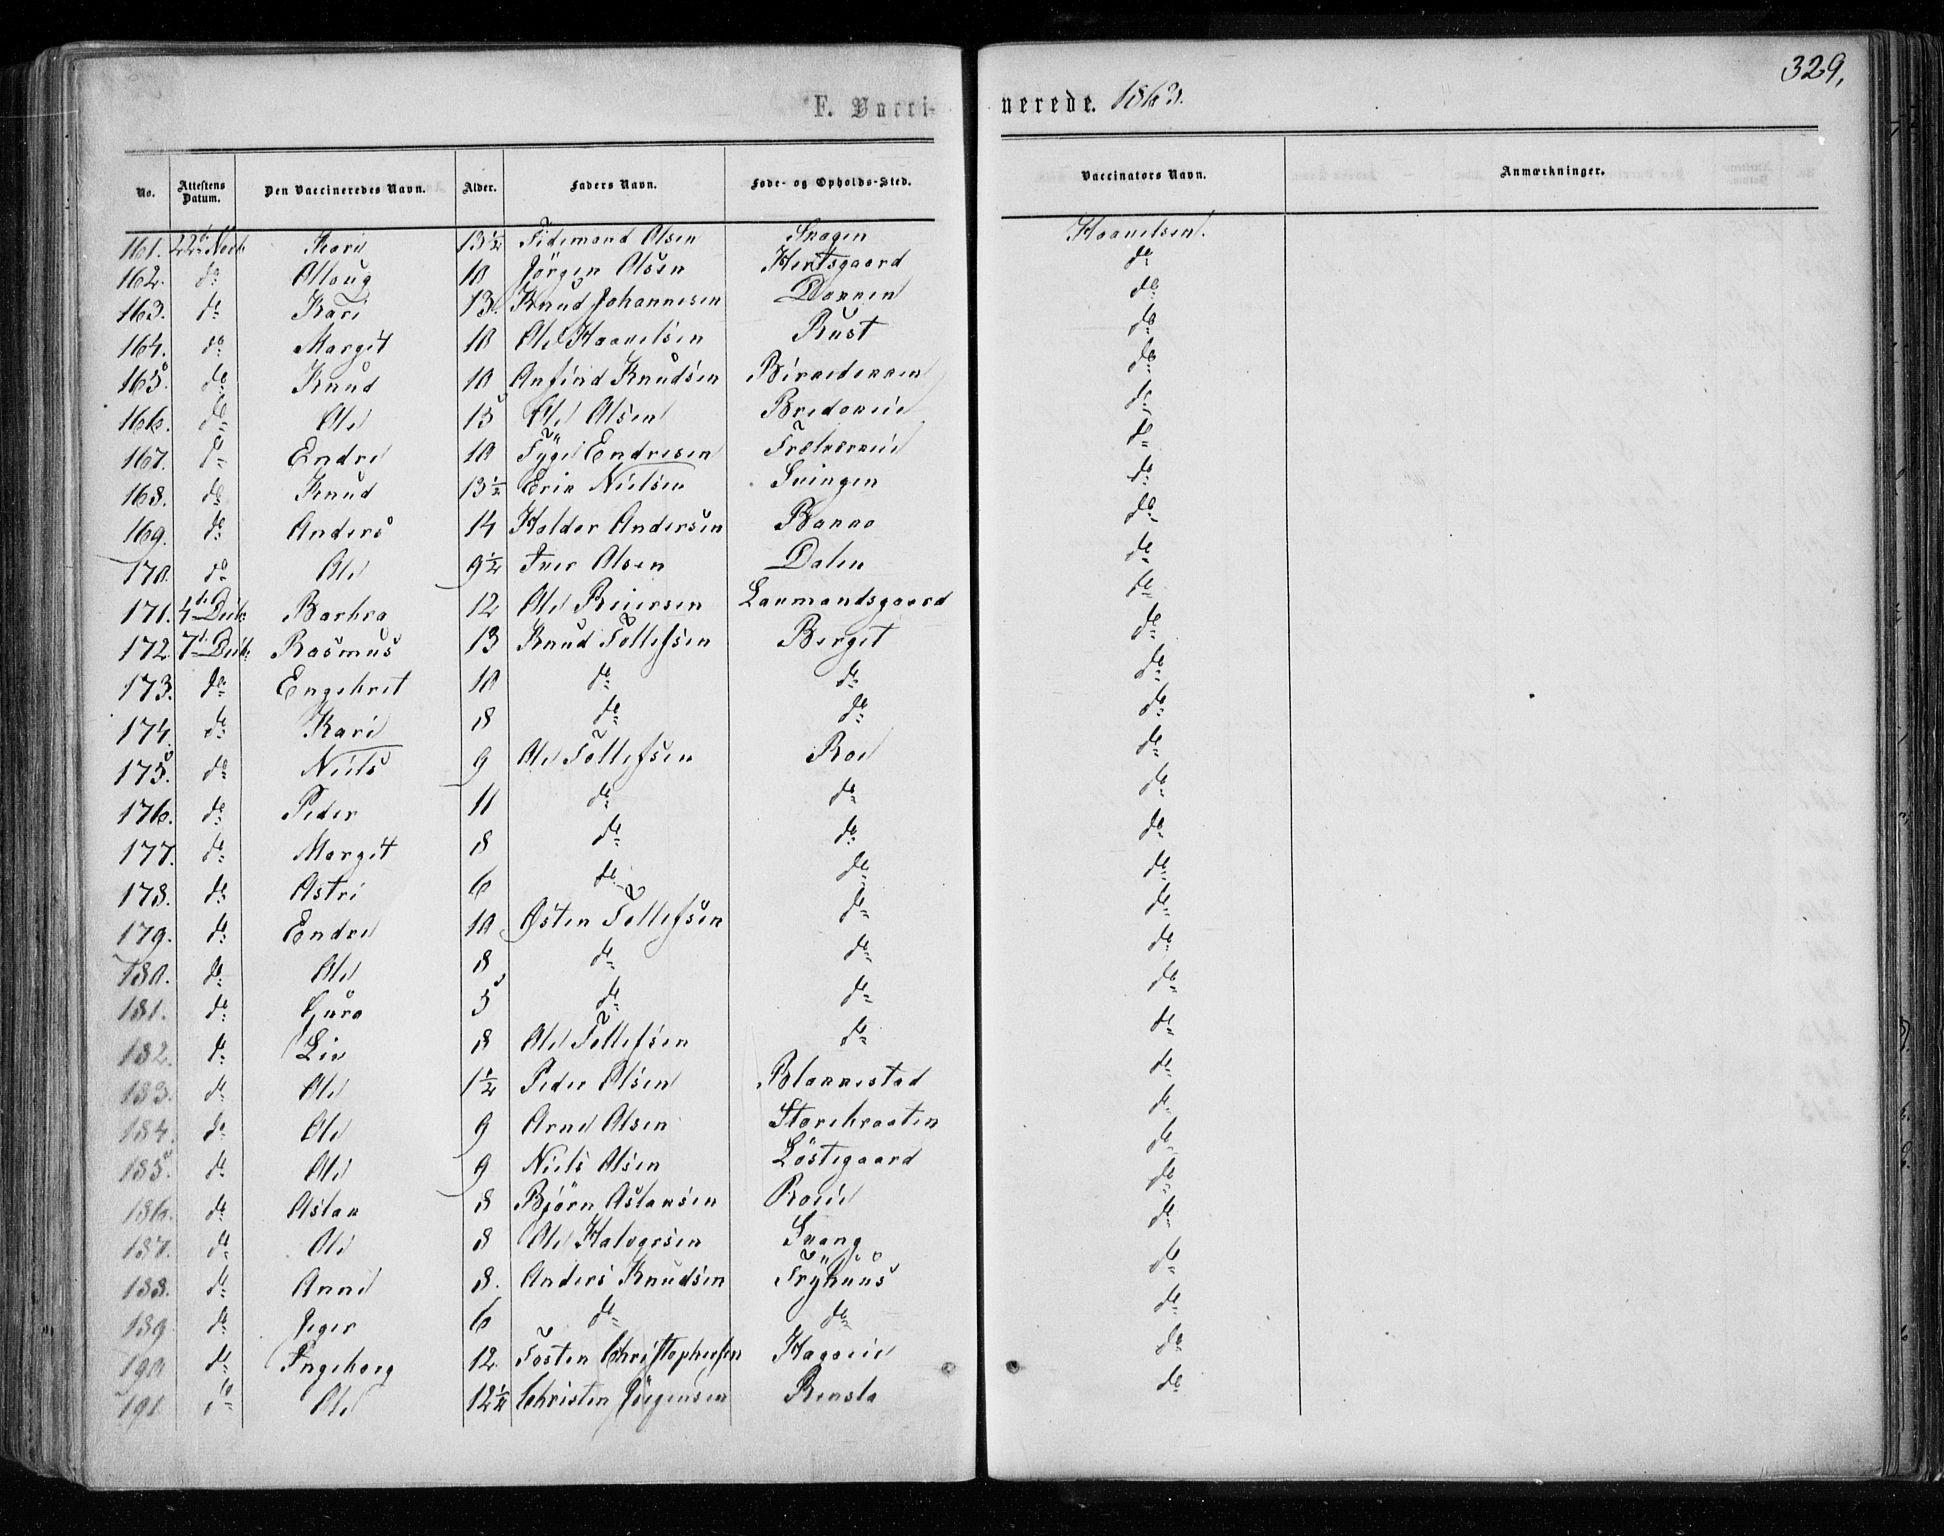 329.
F. Vacci-nerede. 1863.
No. Attestens Datum. Den Vaccineredes Navn. Alder. Faders Navn. Føde- og Opholds-Sted. Vaccinators Navn. Anmærkninger.
161. 22 Novb Kari 13½ Tidemand Olsen Haavelsen.
162. do Allaug 10 Jörgen Olsen do
163. do Kari 13 Knud Johannesen Dokken do
164. do Margit 10 Ole Haavelsen Rust do
165. do Knud 10 Anfind Knudsen do
166. do Ole 15 Ole Olsen do
167. do Endre 10 Endresen do
168. do Knud 13½ Erik Nielsen Svingen do
169. do Anders 14 Haldor Andersen do
170. do Ole 9½ Iver Olsen Dalen do
171. 4 Deck Barbra 12 Ole Reiersen Laumandsgaard do
172. 7 Deck Rasmus 13 Knud Tollefsen Berget do
173. do Engebret 10 do do do
174. do Kari 8 do do do
175. do Niels 9 Ole Tollefsen Roe do
176. do Peder 11 do do do
177. do Margit 8 do do do
178. do Astri 6 do do do
179. do Endre 10 Østen Tollefsen do do
180. do Ole 8 do do do
181. do Guro 5 do do do
182. do Liv 8 Ole Tollefsen do do
183. do Ole 1½ Peder Olsen Blakkestad do
184. do Ole 9 Arne Olsen Storebraaten do
185. do Ole 9 Niels Olsen Löstegaard do
186. do Aslak 8 Björn Aslaksen do
187. do Ole 8 Ole Halvorsen Svang do
188. do Anne 8. Anders Knudsen Fryhuus do
189 do 6 do do do
190 do Ingeborg 12. Tosten Christophersen do
191. do Ole 12½ Christen Jörgensen Rensla do